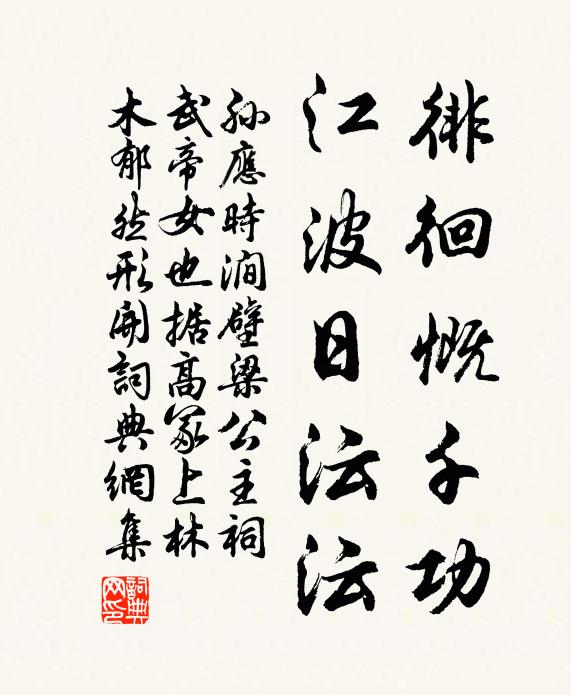 徘徊慨千功
江波日沄沄
孙應時澗壁梁公主祠
武帝女也据高冢上林
木郁然形開詞典網集
詞典网印